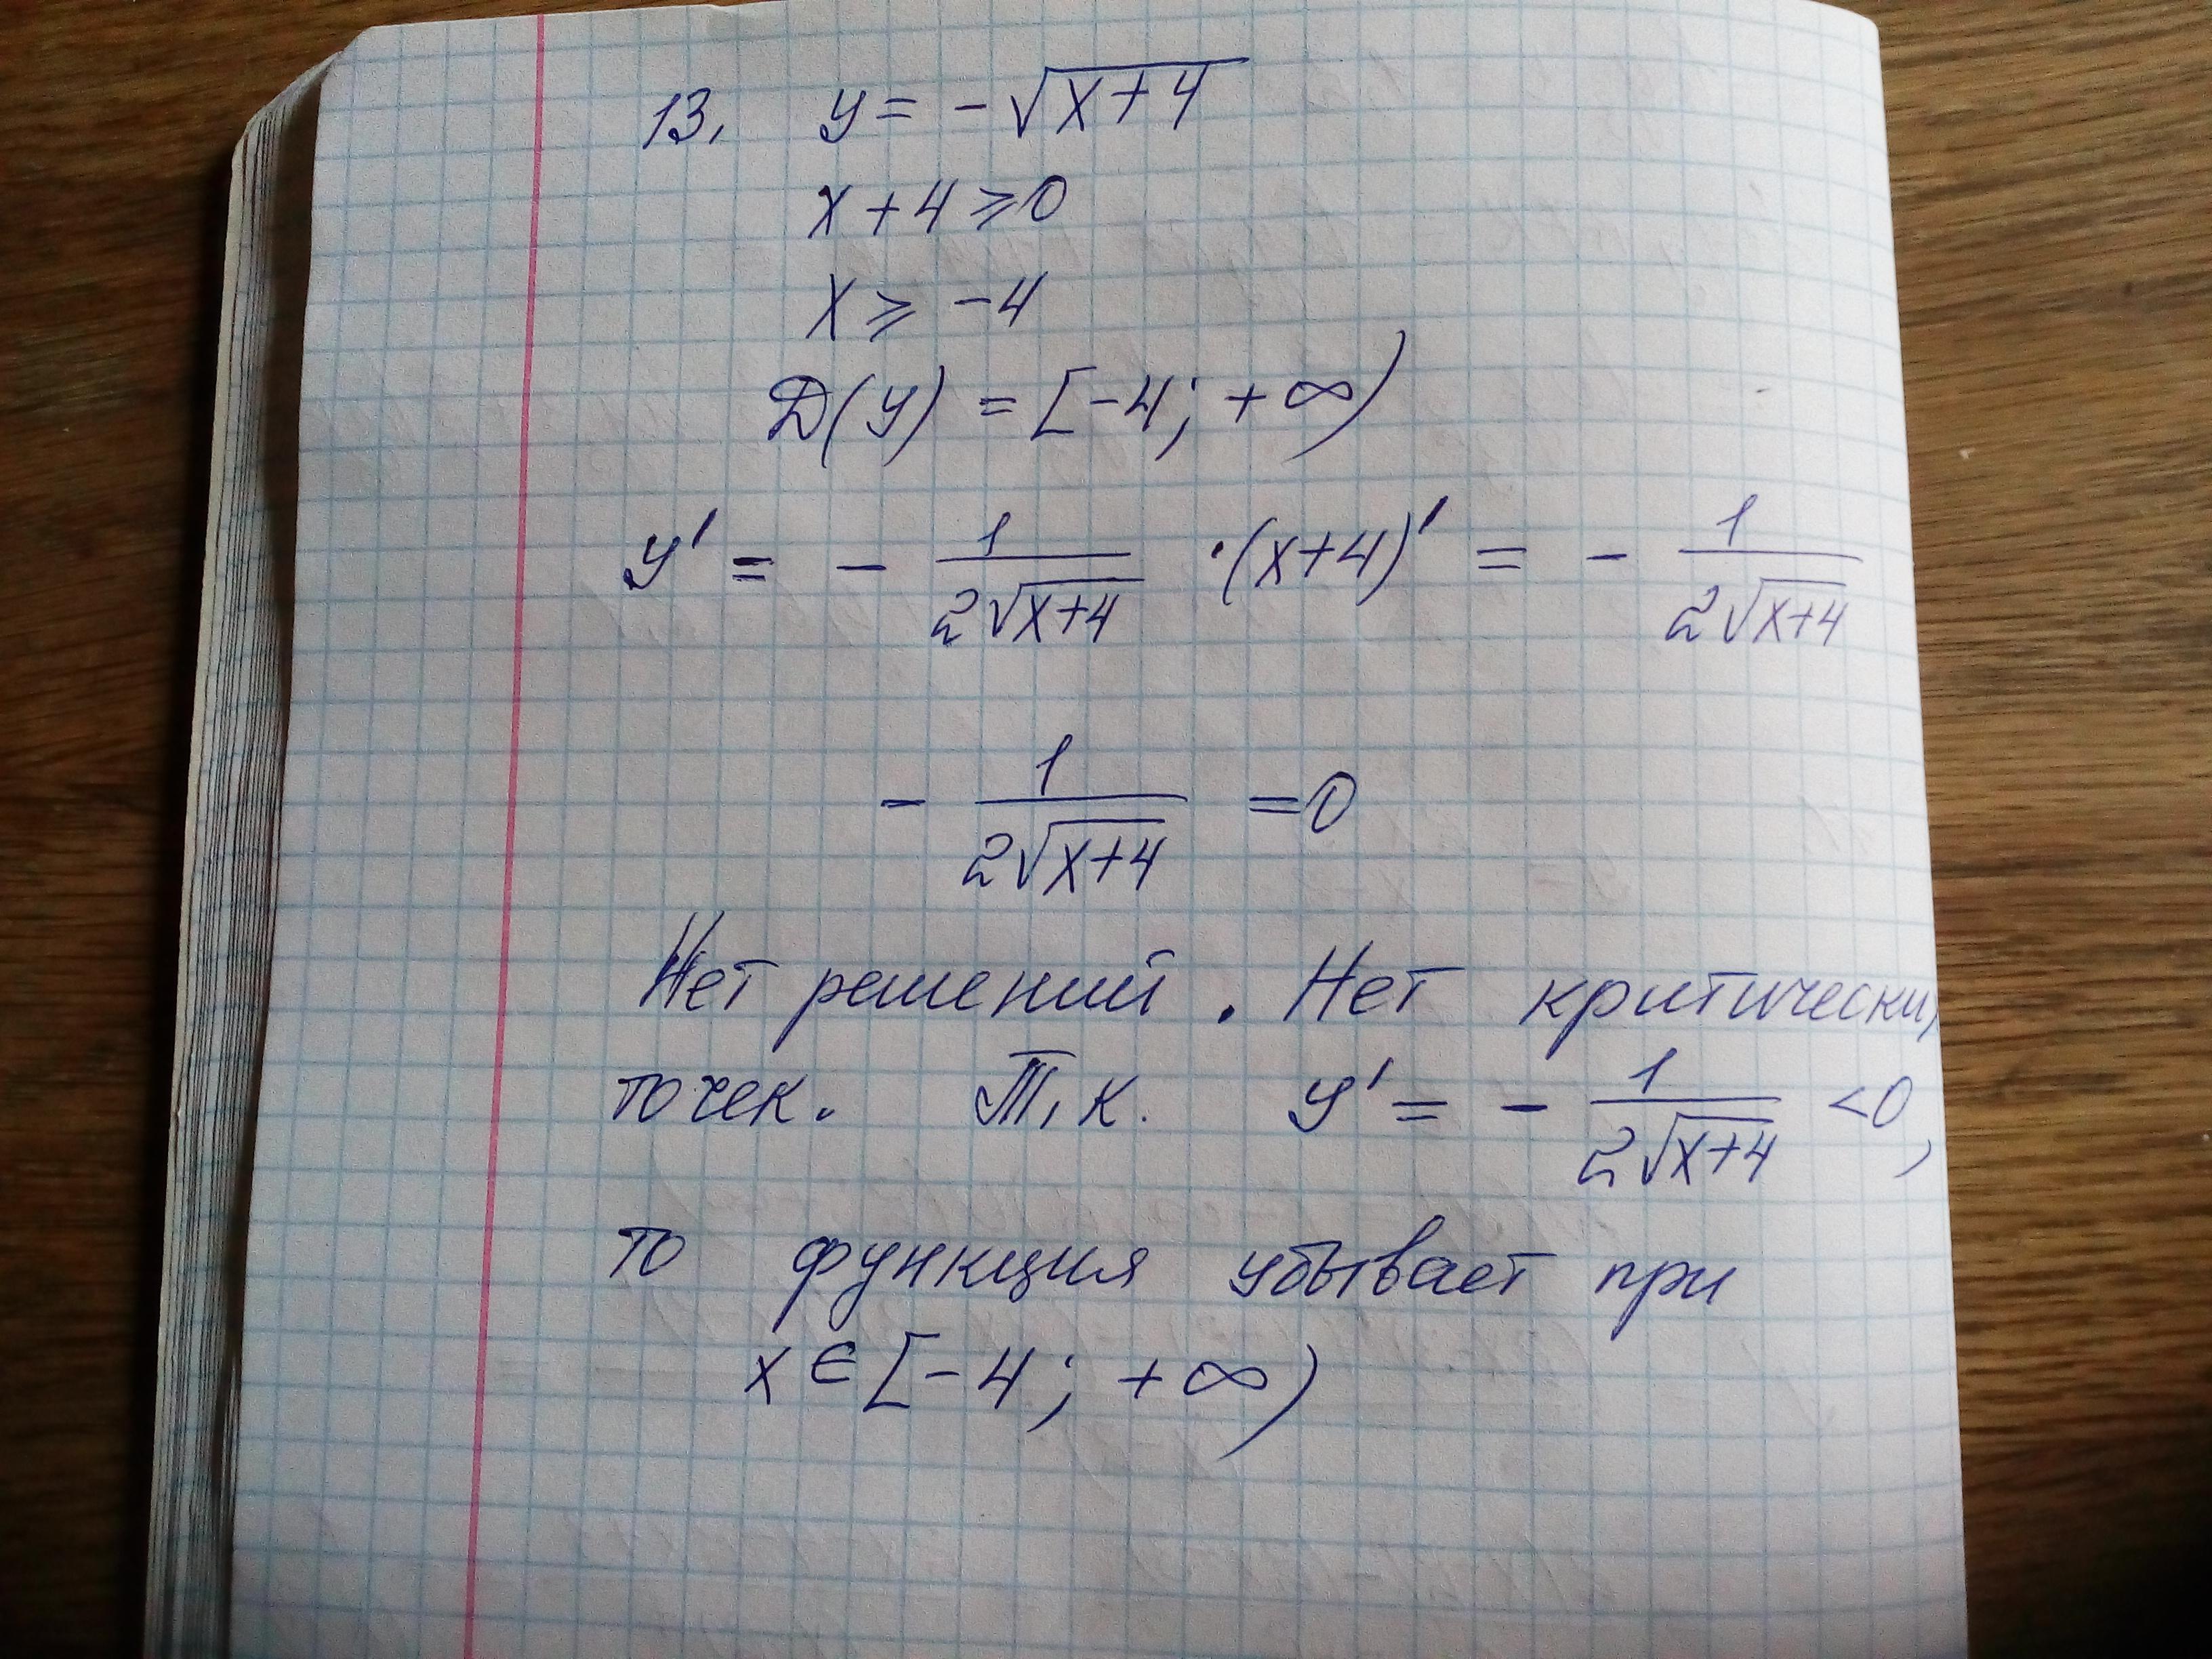 13. y = -√(x+4)
x+4 ≥ 0
x ≥ -4
D(y) = [-4; +∞)
y' = - 1/(2√(x+4)) · (x+4)' = - 1/(2√(x+4))
- 1/(2√(x+4)) = 0
Нет решений. Нет критических
точек. Т.к. y' = - 1/(2√(x+4)) < 0,
то функция убывает при
x ∈ [-4; +∞)